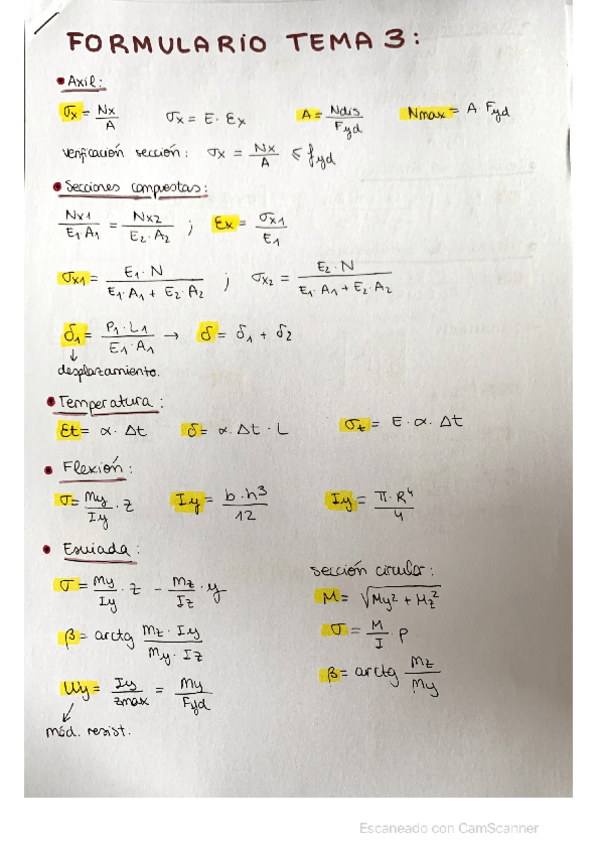 FORMULARIO TEMA 3:
• Axil:
σx = Nx/A   σx = E · εx   A = Ndis/Fyd   Nmax = A · Fyd
verificación sección: σx = Nx/A ≤ fyd
• Secciones compuestas:
Nx1/(E1·A1) = Nx2/(E2·A2) ; εx = σx1/E1
σx1 = E1·N/(E1·A1 + E2·A2) ; σx2 = E2·N/(E1·A1 + E2·A2)
δ1 = P1·L1/(E1·A1) → δ = δ1 + δ2
↓
desplazamiento.
• Temperatura:
Et = α · Δt   δ = α · Δt · L   σt = E · α · Δt
• Flexión:
σ = My/Iy · z   Iy = b·h³/12   Iy = π·R⁴/4
• Esviada:
σ = My/Iy · z − Mz/Iz · y
β = arctg Mz·Iy/(My·Iz)
Wy = Iy/zmax = My/Fyd
mód. resist.
sección circular:
M = √(My² + Mz²)
σ = M/I · ρ
β = arctg Mz/My
Escaneado con CamScanner